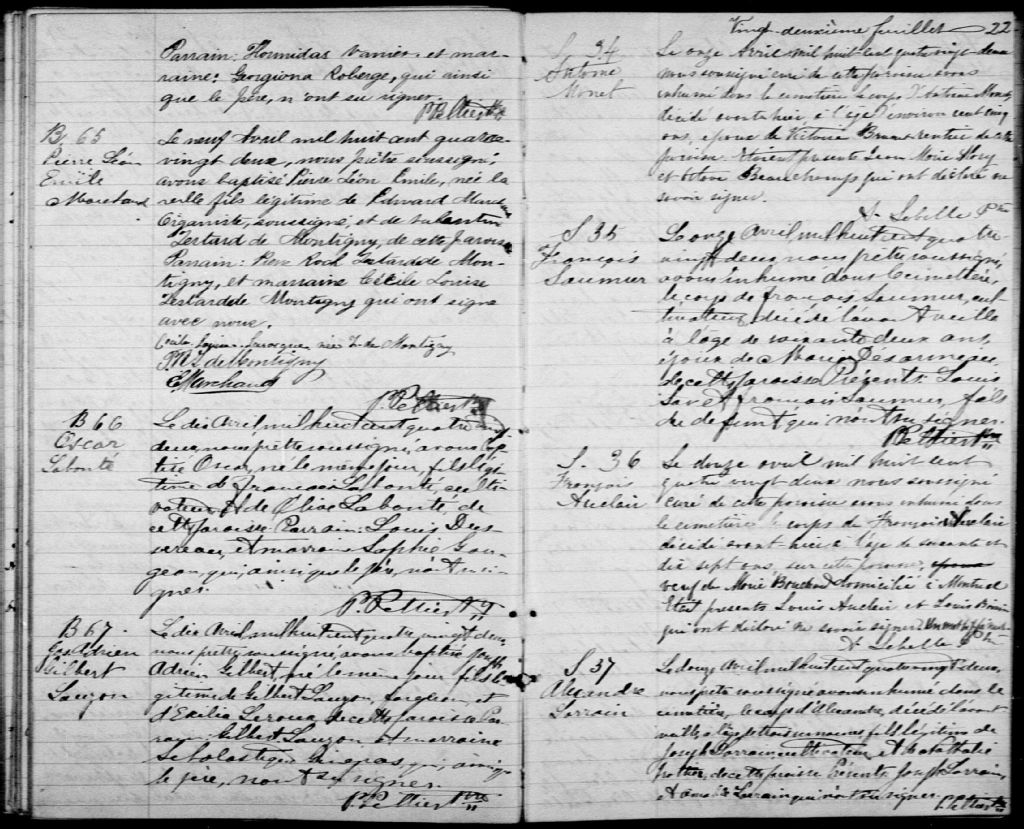 Parrain: Hormidas Vanier et mar-
raine: Georgiana Roberge, qui ainsi
que le père, n'ont su signer.
P. Peltier Ptre
B 65
Pierre Léon
Emile
Marchand
Le neuf Avril mil huit cent quatre
vingt deux, nous prêtre soussigné
avons baptisé Pierre Léon Emile, née la
veille fils légitime de Edward March
Organiste, soussigné, et de
Testard de Montigny, de cette paroisse
Parrain: Pierre Rock Testard de Mon-
tigny, et marraine Cécile Louise
Testard de Montigny qui ont signé
avec nous.
née T. de Montigny
de Montigny
E Marchand
P. Peltier Ptre
B 66
Oscar
Labonté
Le dix Avril mil huit cent quatre vingt
deux, nous prêtre soussigné, avons bap-
tisé Oscar, né le même jour, fils légi-
time de François Labonté, culti-
vateur, et de Olive Labonté de
cette paroisse Parrain: Louis Des
et marraine Sophie Gou-
geon, qui, ainsi que le père, n'ont su si-
gner.
P. Peltier Ptre
B 67
Jos Adrien
Gilbert
Lauzon
Le dix Avril mil huit cent quatre vingt deux,
nous prêtre soussigné, avons baptisé Joseph
Adrien Gilbert, né le même jour fils lé-
gitime de Gilbert Lauzon, forgeron, et
d'Exilia Leroux de cette paroisse Par-
rain: Gilbert Lauzon et marraine
Scholastique qui, ainsi que
le père, n'ont su signer.
P. Peltier Ptre
Vingt-deuxième feuillet 22
S 34
Antoine
Monet
Le onze Avril mil huit cent quatre vingt deux
nous soussigné curé de cette paroisse avons
inhumé dans le cimetière le corps d'Antoine Monet
décédé avant hier, à l'âge d'environ cent cinq
ans, époux de Victoire Brunet rentier de cette
paroisse. Etaient présents Jean Marie
et Beauchamps qui ont déclaré ne
savoir signer.
Ptre
S 35
François
Saumur
Le onze Avril, mil huit cent quatre
vingt deux, nous prêtre soussigné,
avons inhumé dans le cimetière,
le corps de François Saumur, cul
tivateur, décédé l'avant veille
à l'âge de soixante deux ans,
époux de Marie
de cette paroisse. Présents: Louis
et François Saumur, fils
du défunt qui n'ont su signer.
P. Peltier Ptre
S. 36
François
Auclair
Le douze avril mil huit cent
quatre vingt deux nous soussigné
curé de cette paroisse avons inhumé dans
le cimetière le corps de François Auclair
décédé avant hier à l'âge de soixante et
dix sept ans, sur cette paroisse,
veuf de Marie Bouchard domicilié à Montréal
Etait présents Louis Auclair et Louis
qui ont déclaré ne savoir signer.
Ptre
S 37
Alexandre
Lorrain
Le douze Avril mil huit cent quatre vingt deux,
nous prêtre soussigné avons inhumé dans le
cimetière, le corps d'Alexandre, décédé l'avant
veille à l'âge de trois semaines fils légitime de
Joseph Lorrain, cultivateur, et de Nathalie
de cette paroisse Présents Joseph Lorrain,
et Lorrain qui n'ont su signer.
P. Peltier Ptre